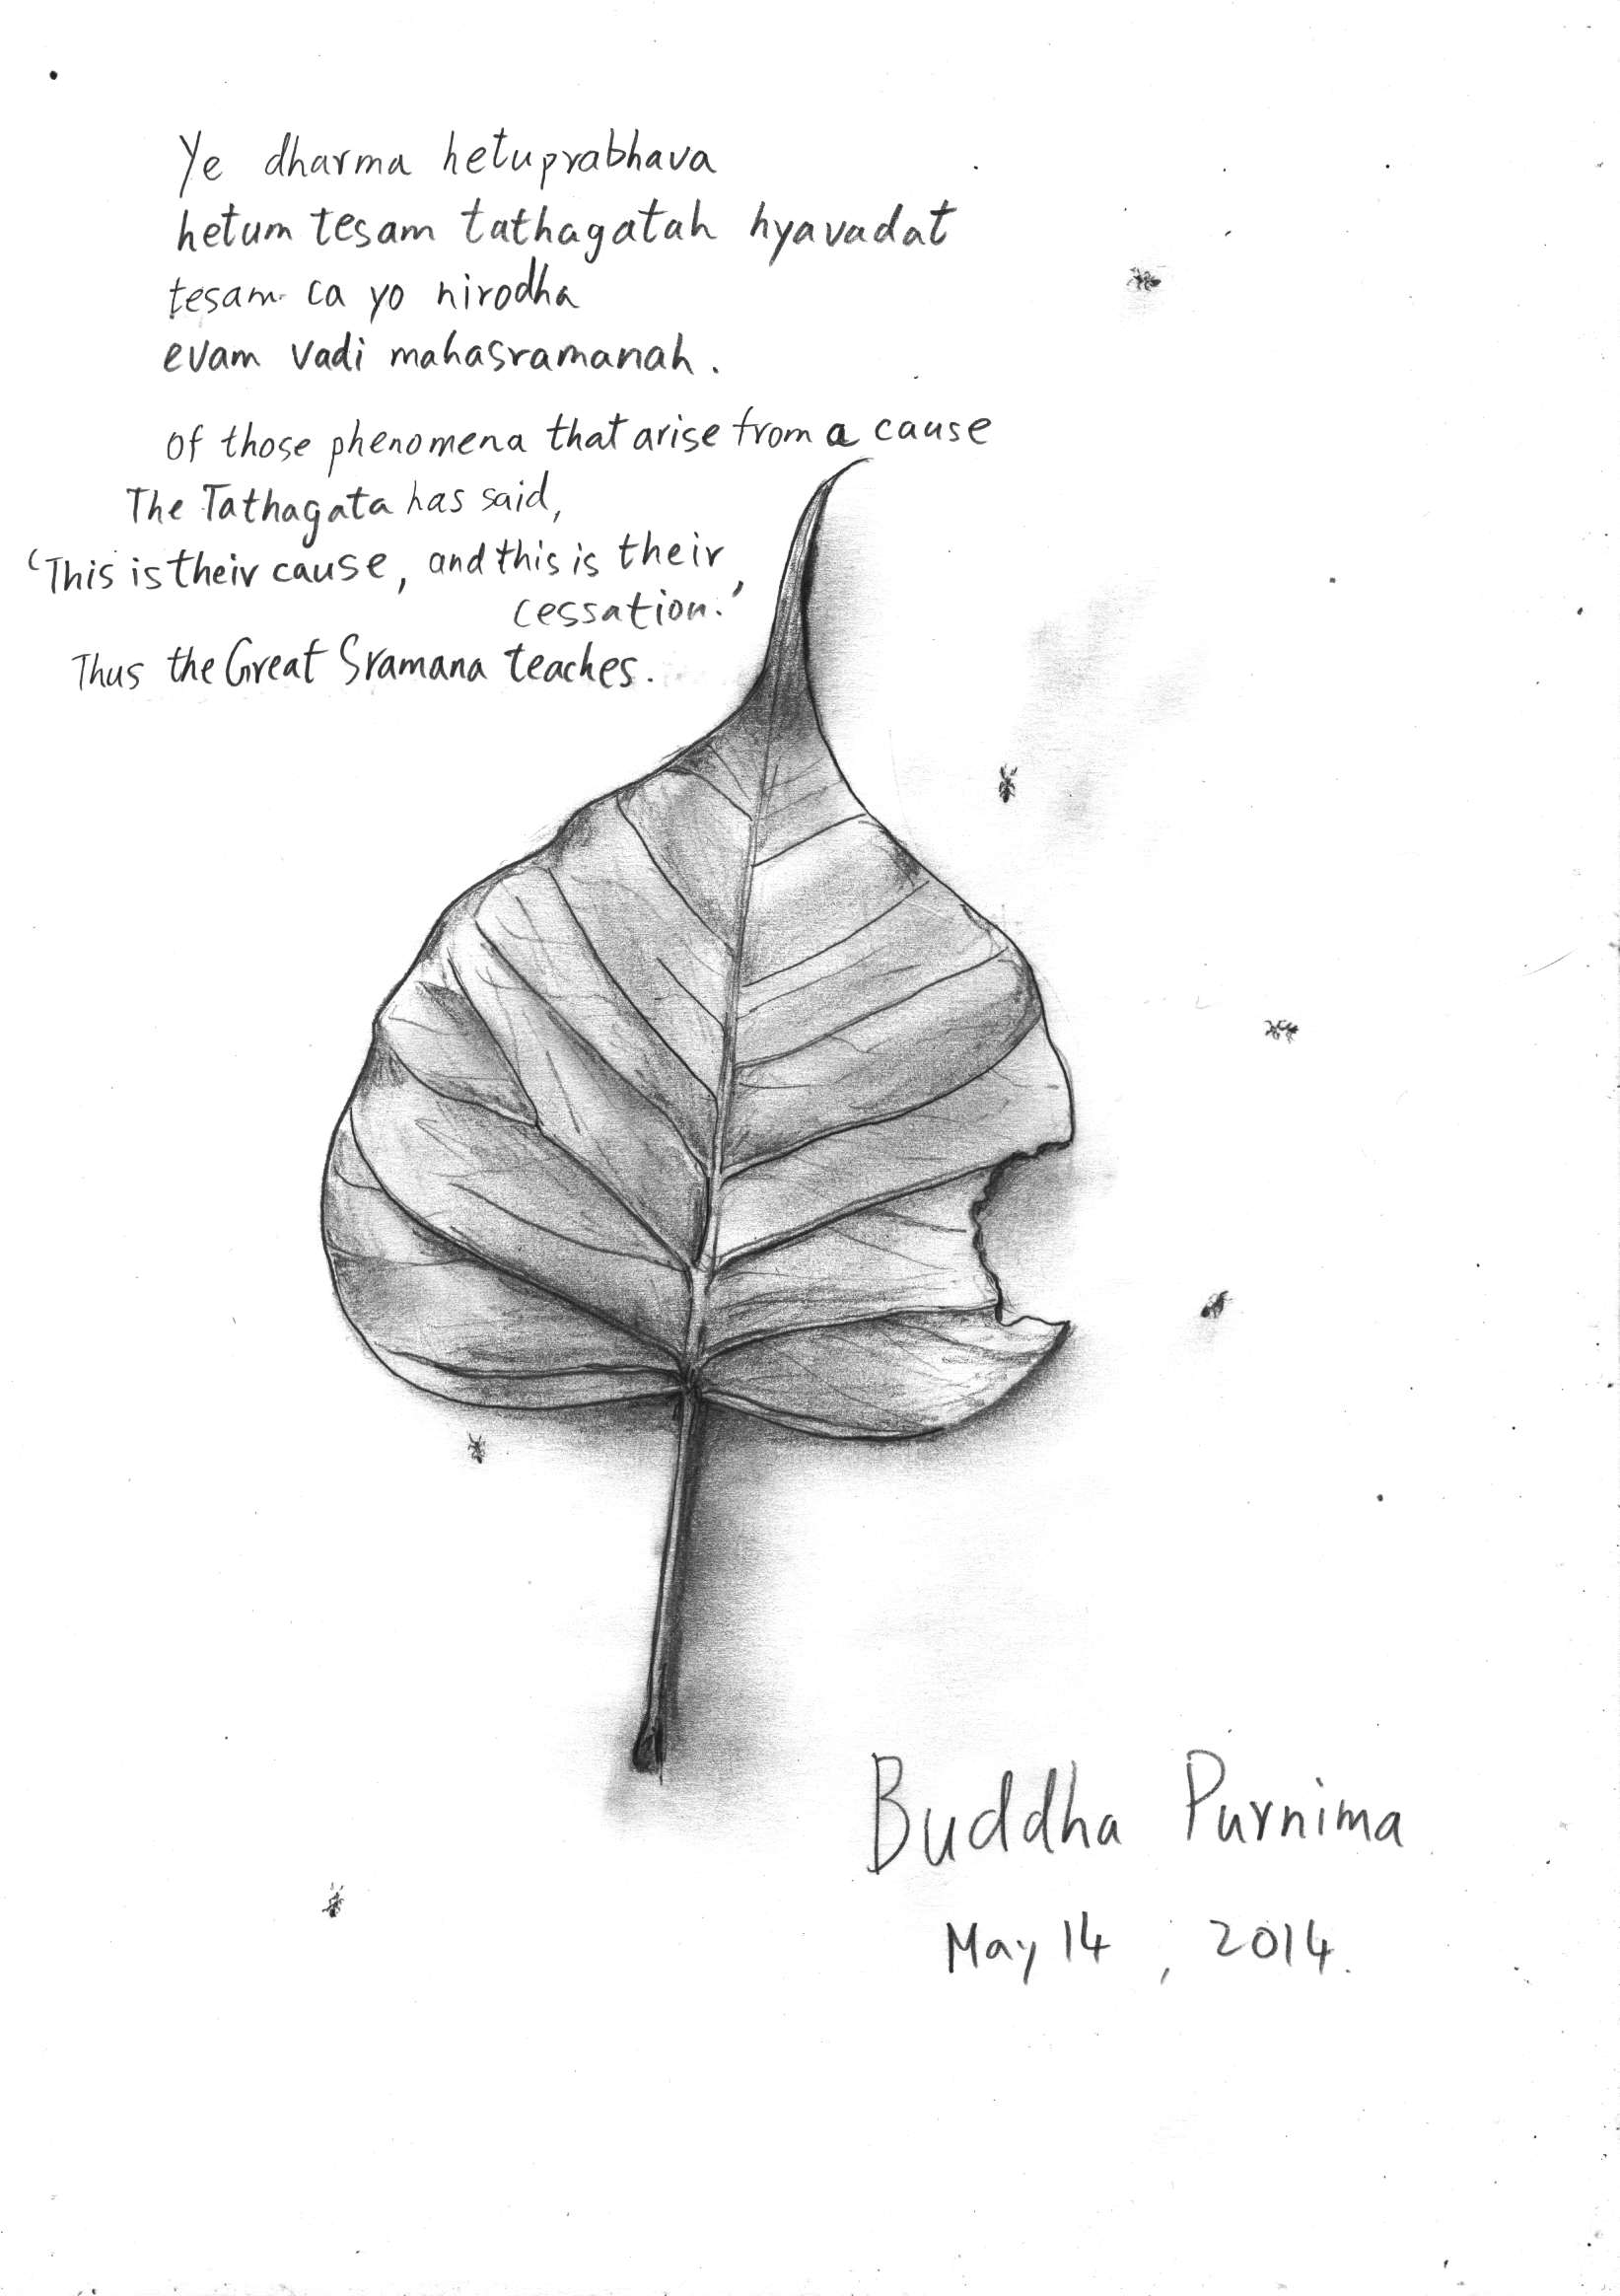 Ye dharma hetuprabhava
hetum tesam tathagatah hyavadat
tesam ca yo nirodha
evam vadi mahasramanah.
Of those phenomena that arise from a cause
The Tathagata has said,
‘This is their cause, and this is their
cessation.’
Thus the Great Sramana teaches.
Buddha Purnima
May 14, 2014.